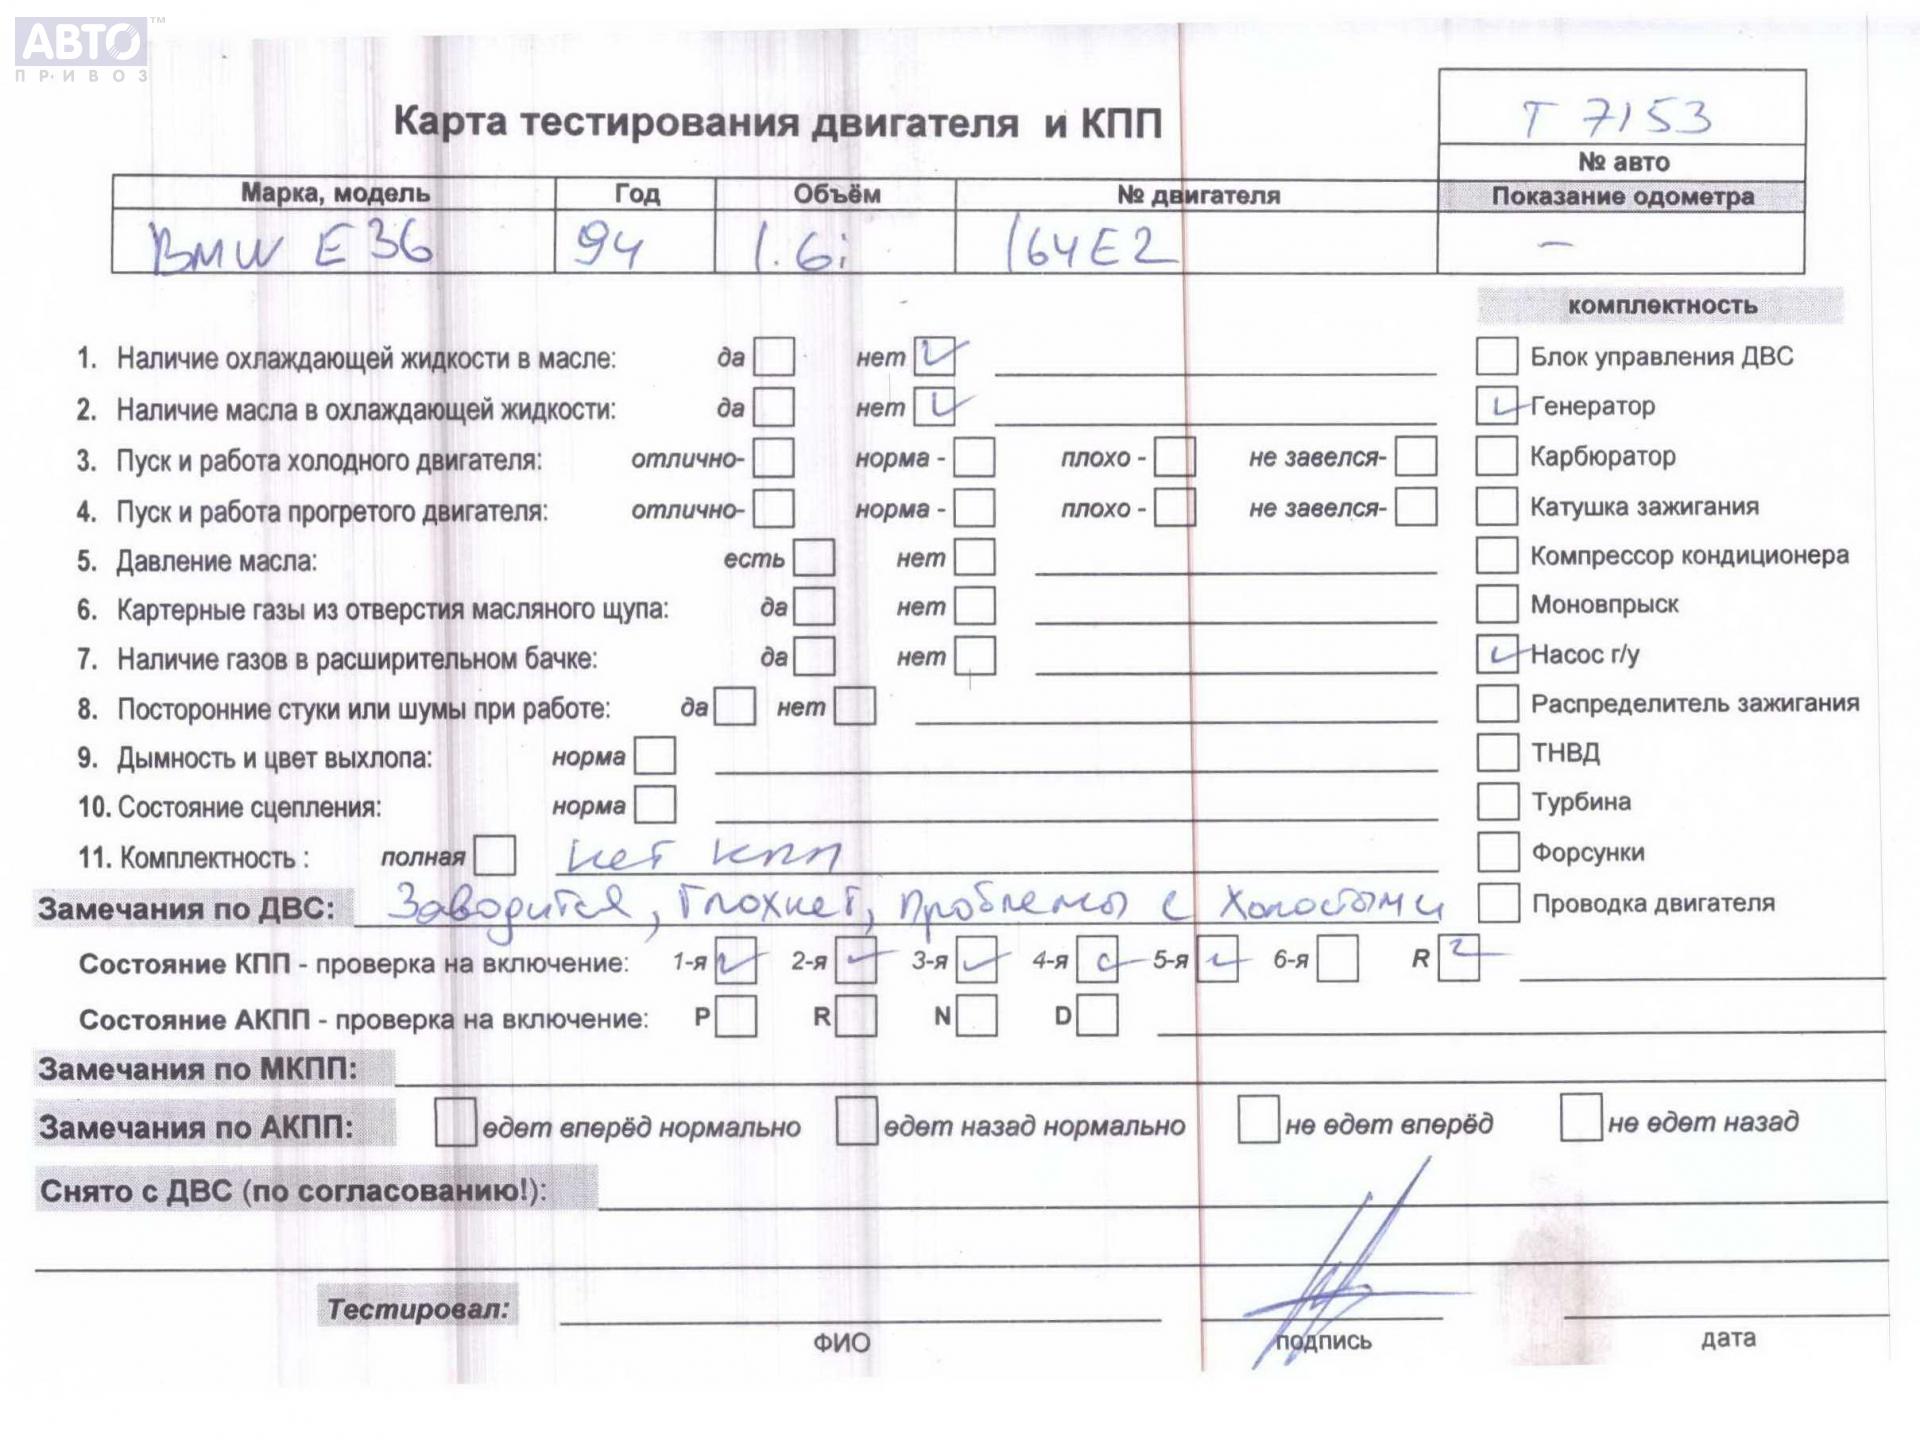 АВТО™
ПРИВОЗ
Т 7153
Карта тестирования двигателя и КПП
№ авто
Марка, модель Год Объём № двигателя Показание одометра
BMW E36 94 1.6i 164E2 –
комплектность
1. Наличие охлаждающей жидкости в масле: да нет Блок управления ДВС
2. Наличие масла в охлаждающей жидкости: да нет Генератор
3. Пуск и работа холодного двигателя: отлично- норма - плохо - не завелся- Карбюратор
4. Пуск и работа прогретого двигателя: отлично- норма - плохо - не завелся- Катушка зажигания
5. Давление масла: есть нет Компрессор кондиционера
6. Картерные газы из отверстия масляного щупа: да нет Моновпрыск
7. Наличие газов в расширительном бачке: да нет Насос г/у
8. Посторонние стуки или шумы при работе: да нет Распределитель зажигания
9. Дымность и цвет выхлопа: норма ТНВД
10. Состояние сцепления: норма Турбина
11. Комплектность : полная нет КПП Форсунки
Замечания по ДВС: Заводится, Глохнет, проблемы с Холостыми Проводка двигателя
Состояние КПП - проверка на включение: 1-я 2-я 3-я 4-я 5-я 6-я R
Состояние АКПП - проверка на включение: P R N D
Замечания по МКПП:
Замечания по АКПП: едет вперёд нормально едет назад нормально не едет вперёд не едет назад
Снято с ДВС (по согласованию!):
Тестировал:
ФИО подпись дата